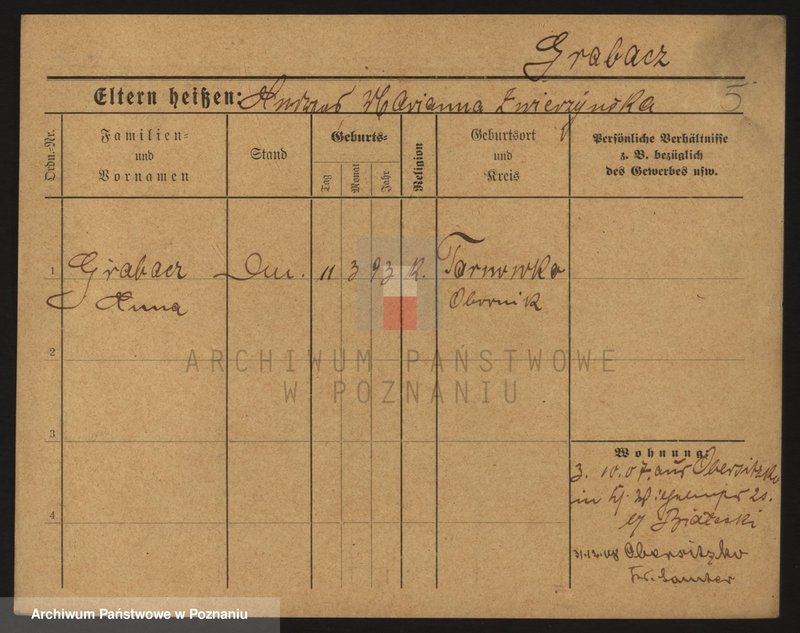 Grabacz
Eltern heißen: Andreas Marianna Zwierzyńska 5
Ordn.-Nr.
Familien-
und
Vornamen
Stand
Geburts-
Tag
Monat
Jahr
Religion
Geburtsort
und
Kreis
Persönliche Verhältnisse
z. B. bezüglich
des Gewerbes usw.
1 Grabacz 11 3 93 K. Tarnowko
Anna Obornik
2
ARCHIWUM PAŃSTWOWE
W POZNANIU
3
Wohnung:
3. 10. 07. aus Obersitzko
in
4 Białecki
31.12.08 Obersitzko
Kr. Samter
Archiwum Państwowe w Poznaniu